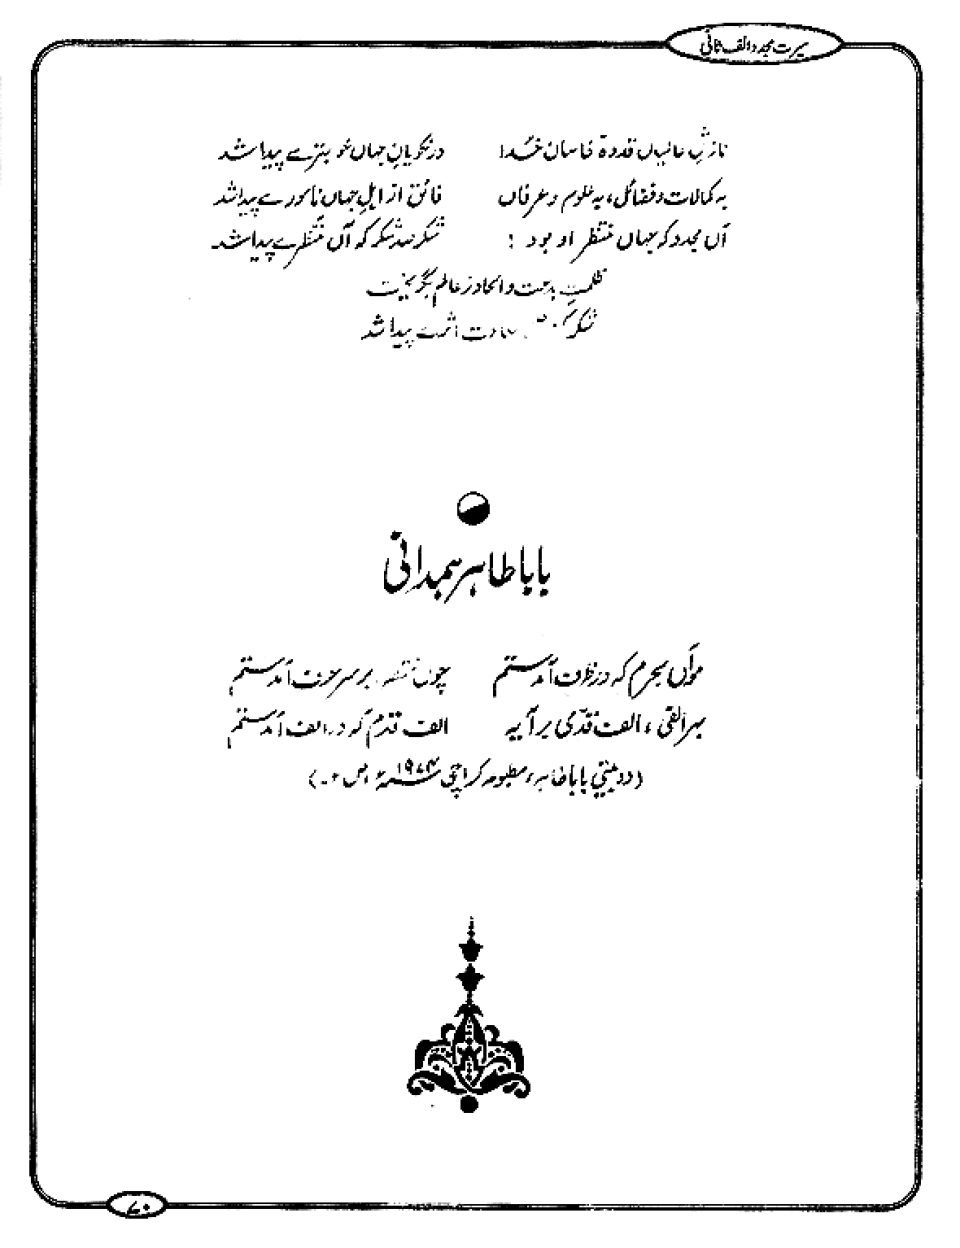 سیرت مجدد الف ثانی
نازشِ عالمیاں قدوۃ خاصانِ خُدا در نکویانِ جہاں خوبترے پیدا شد
بہ کمالات و فضائل، بہ علوم و عرفاں فائق از اہلِ جہاں نامورے پیدا شد
آں مجدد کہ جہاں منتظر او بود : شکر صد شکر کہ آں منتظرے پیدا شد
ظلمتِ بدعت و الحاد ز عالم بگریخت
شکر کہ اثرے پیدا شد
بابا طاہر ہمدانی
موآں بحرم کہ در ظرف آمدستم چوں نقطہ بر سر حرف آمدستم
بہر الفی، الف قدّی بر آیہ الف قدم کہ در الف آمدستم
(دو بیتی بابا طاہر، مطبوعہ کراچی ۱۹۷۴ء، ص ۲۰)
۷۰